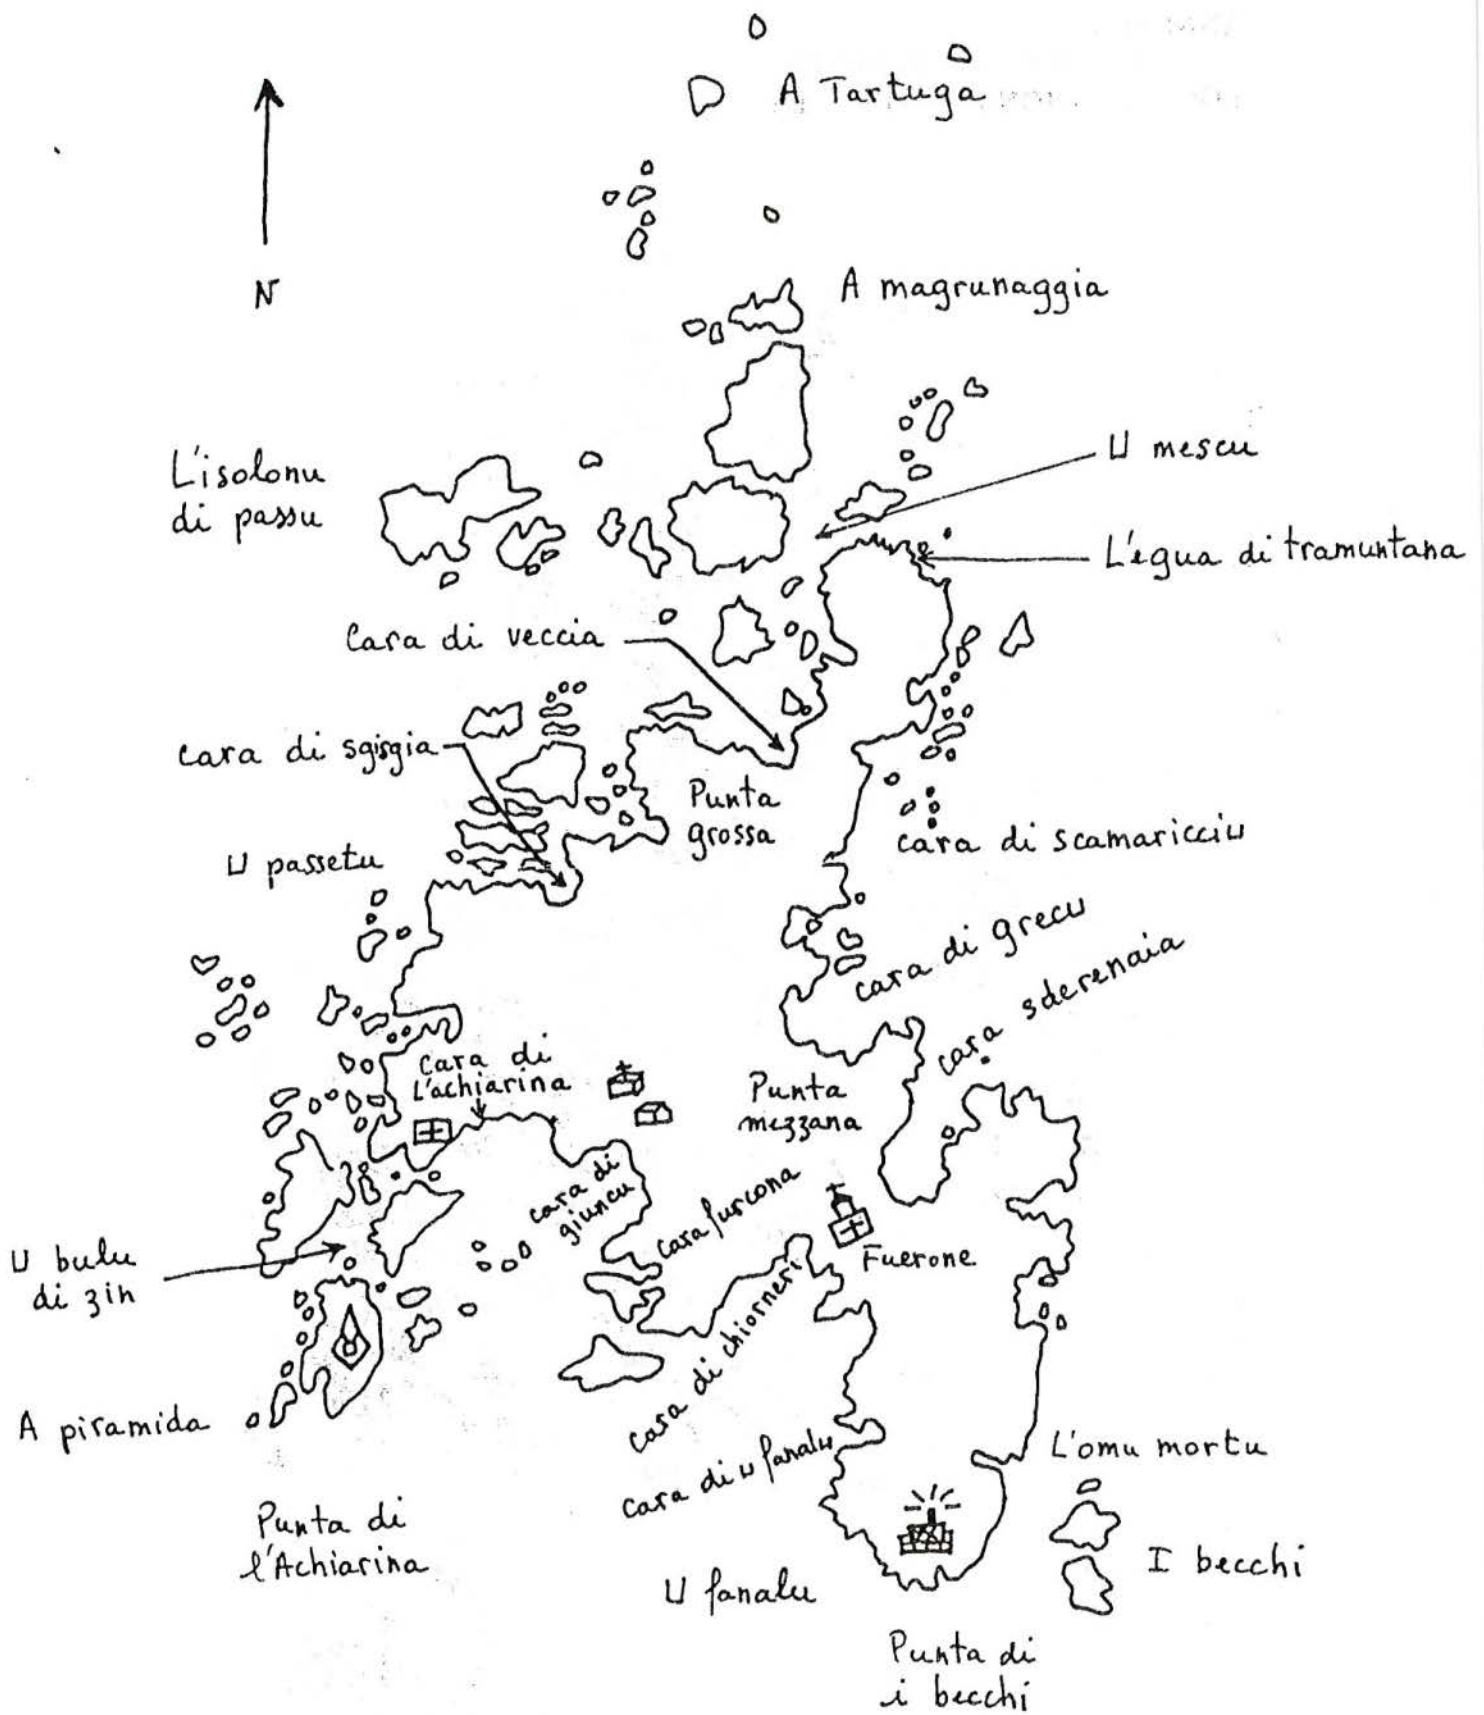 A Tartuga
N
A magrunaggia
U mescu
L'isolonu
di passu
L'egua di tramuntana
Cara di veccia
cara di sgisgia
Punta
grossa
cara di scamaricciu
U passetu
cara di grecu
cara sderenaia
cara di
L'achiarina
Punta
mezzana
cara di
giuncu
cara furcona
Fuerone
U bulu
di zin
cara di chiorneri
A piramida
cara di u fanalu
L'omu mortu
Punta di
l'Achiarina
I becchi
U fanalu
Punta di
i becchi